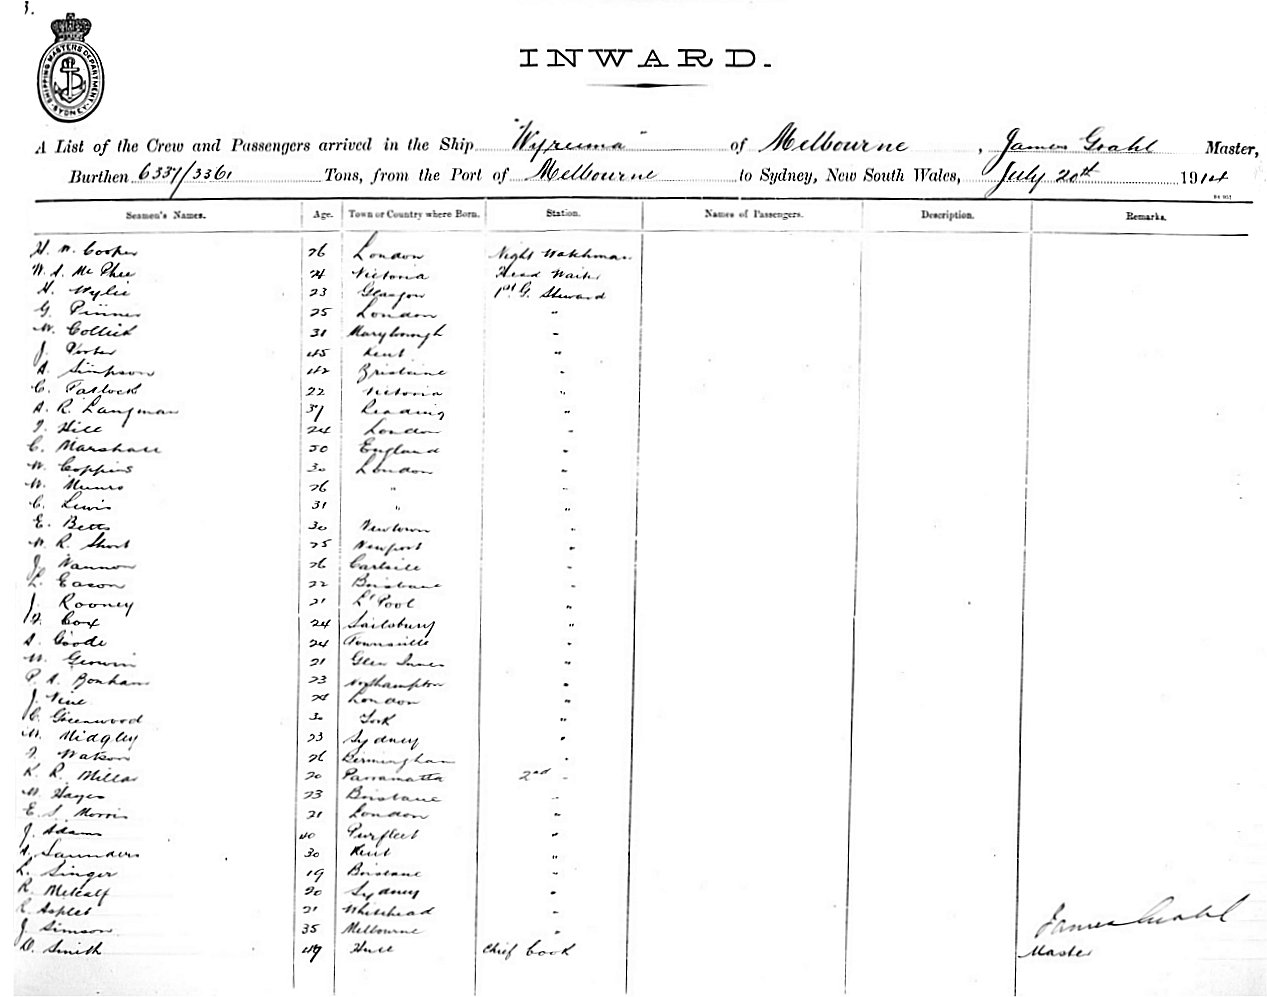 3.
SHIPPING MASTERS DEPARTMENT SYDNEY
INWARD.
A List of the Crew and Passengers arrived in the Ship "Wyreema" of Melbourne, James Grahl Master,
Burthen 6337/3361 Tons, from the Port of Melbourne to Sydney, New South Wales, July 20th 1914
Seamen's Names. Age. Town or Country where Born. Station. Names of Passengers. Description. Remarks.
H. W. Cooper 26 London Night Watchman
W. A. McPhee 24 Victoria Head Waiter
H. Wylie 23 Glasgow 1st G. Steward
G. Pinner 25 London "
W. Collick 31 Maryborough "
J. Porter 45 Kent "
A. Simpson 42 Brisbane "
C. Tatlock 22 Victoria "
A. R. Langman 37 Reading "
F. Hill 24 London "
C. Marshall 50 England "
W. Coppins 30 London "
W. Munro 26 " "
C. Lewis 31 " "
E. Betts 30 Newtown "
W. R. Short 25 Newport "
J. Wannon 26 Carlisle "
L. Eason 22 Brisbane "
J. Rooney 21 L'Pool "
F. Cox 24 Sailsbury "
A. Goode 24 Townsville "
W. 21 Glen Innes "
P. A. Bonham 23 Northampton "
J. Vine 24 London "
C. Greenwood 30 York "
W. Midgley 23 Sydney "
F. Watson 26 Birmingham "
K. R. Millar 20 Parramatta 2nd "
W. Hayes 23 Brisbane "
E. S. Morris 21 London "
J. Adams 40 Purfleet "
A. Saunders 30 Kent "
L. Singer 19 Brisbane "
R. Metcalf 20 Sydney "
R. Asplet 21 Whitehead "
J. Simson 35 Melbourne "
D. Smith 49 Hull Chief Cook
James Grahl
Master